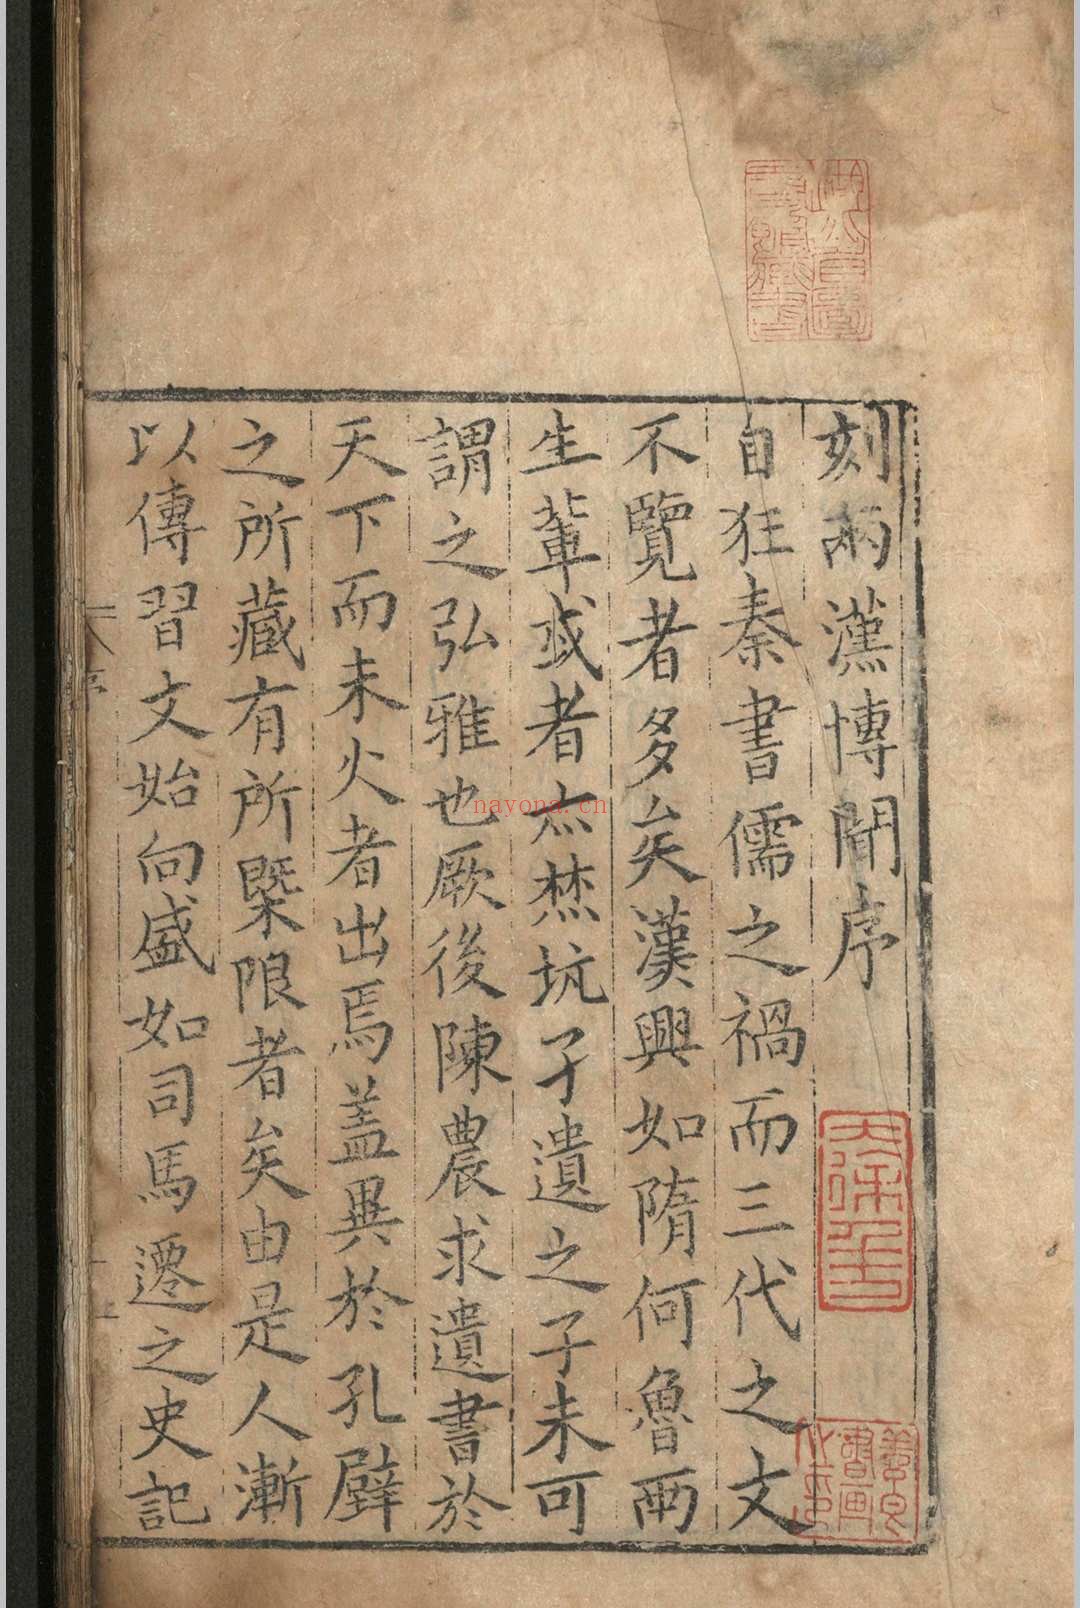 刻兩漢博聞序
自狂秦書儒之禍而三代之文
不覽者多矣漢興如隋何魯兩
生輩或者亦焚坑孑遺之子未可
謂之弘雅也厥後陳農求遺書於
天下而未火者出焉蓋異於孔壁
之所藏有所槩限者矣由是人漸
以傳習文始向盛如司馬遷之史記
nayona.cn